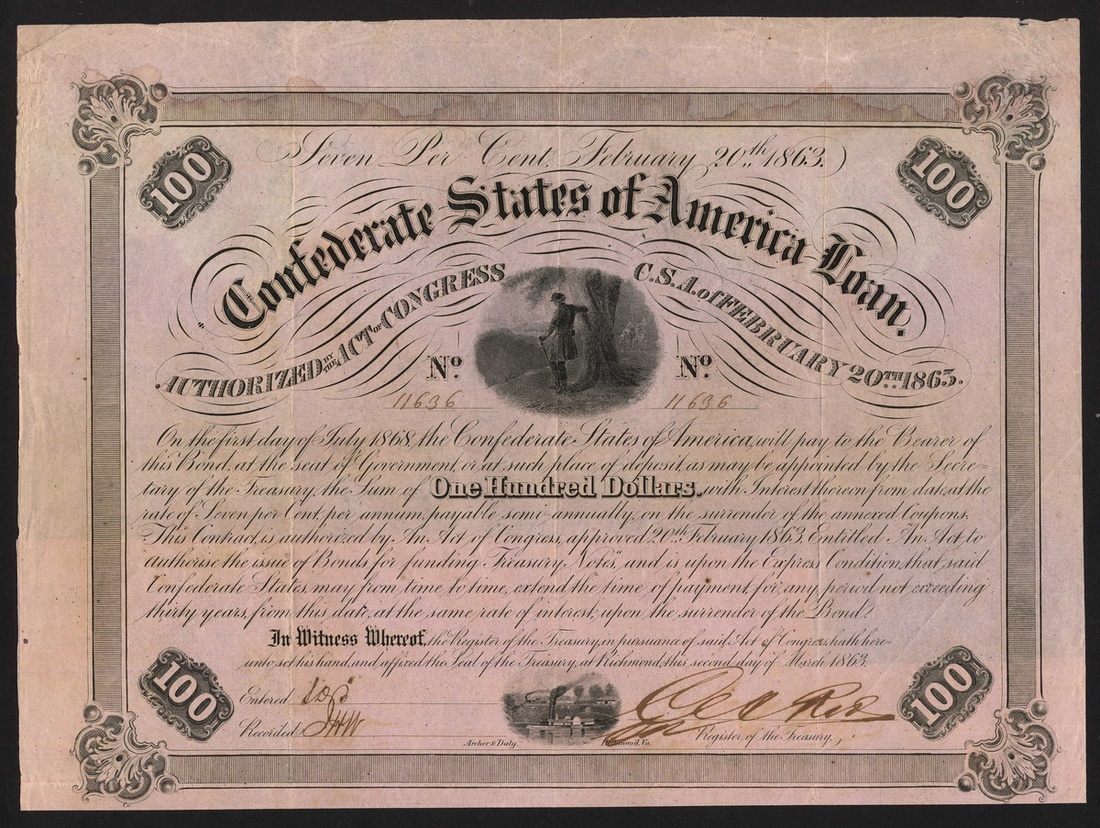 Seven Per Cent, February 20th. 1863.
100
100
Confederate States of America Loan.
AUTHORIZED BY THE ACT OF CONGRESS
C.S.A. of FEBRUARY 20TH. 1863.
No. No.
11636 11636
On the first day of July 1868, the Confederate States of America, will pay to the Bearer of
this Bond, at the seat of Government, or at such place of deposit, as may be appointed by the Secre-
tary of the Treasury, the Sum of One Hundred Dollars. with Interest thereon from date, at the
rate of Seven per Cent. per annum, payable semi-annually, on the surrender of the annexed Coupons.
This Contract, is authorized by An Act of Congress, approved 20th. February 1863, Entitled "An Act to
authorise the issue of Bonds for funding Treasury Notes", and is upon the Express Condition, that said
Confederate States, may from time to time, extend the time of payment, for any period not exceeding
thirty years, from this date, at the same rate of interest, upon the surrender of the Bond.
In Witness Whereof, the Register of the Treasury, in pursuance of said Act of Congress, hath here-
unto, set his hand, and affixed the Seal of the Treasury, at Richmond, this second day of March 1863.
100
100
Entered
Recorded
Register of the Treasury.
Archer & Daly Richmond, Va.